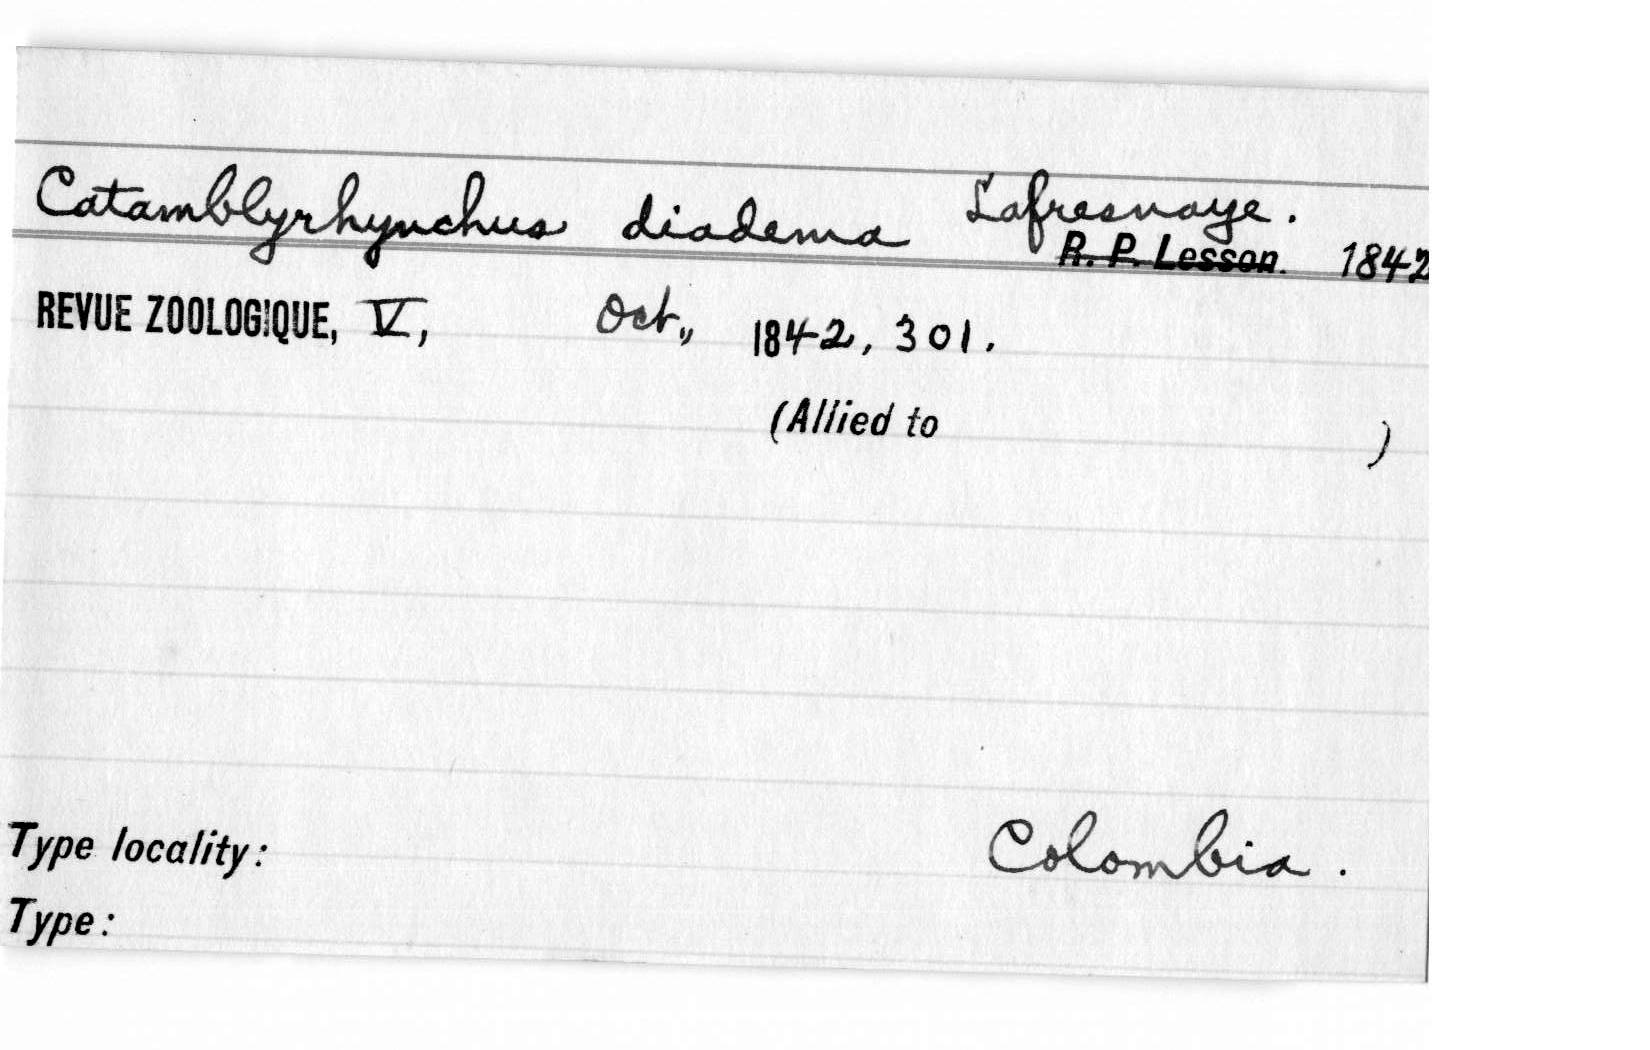 Catamblyrhynchus diadema Lafresnaye.
R. P. Lesson. 1842
REVUE ZOOLOGIQUE, V, Oct., 1842, 301.
(Allied to )
Type locality: Colombia.
Type: